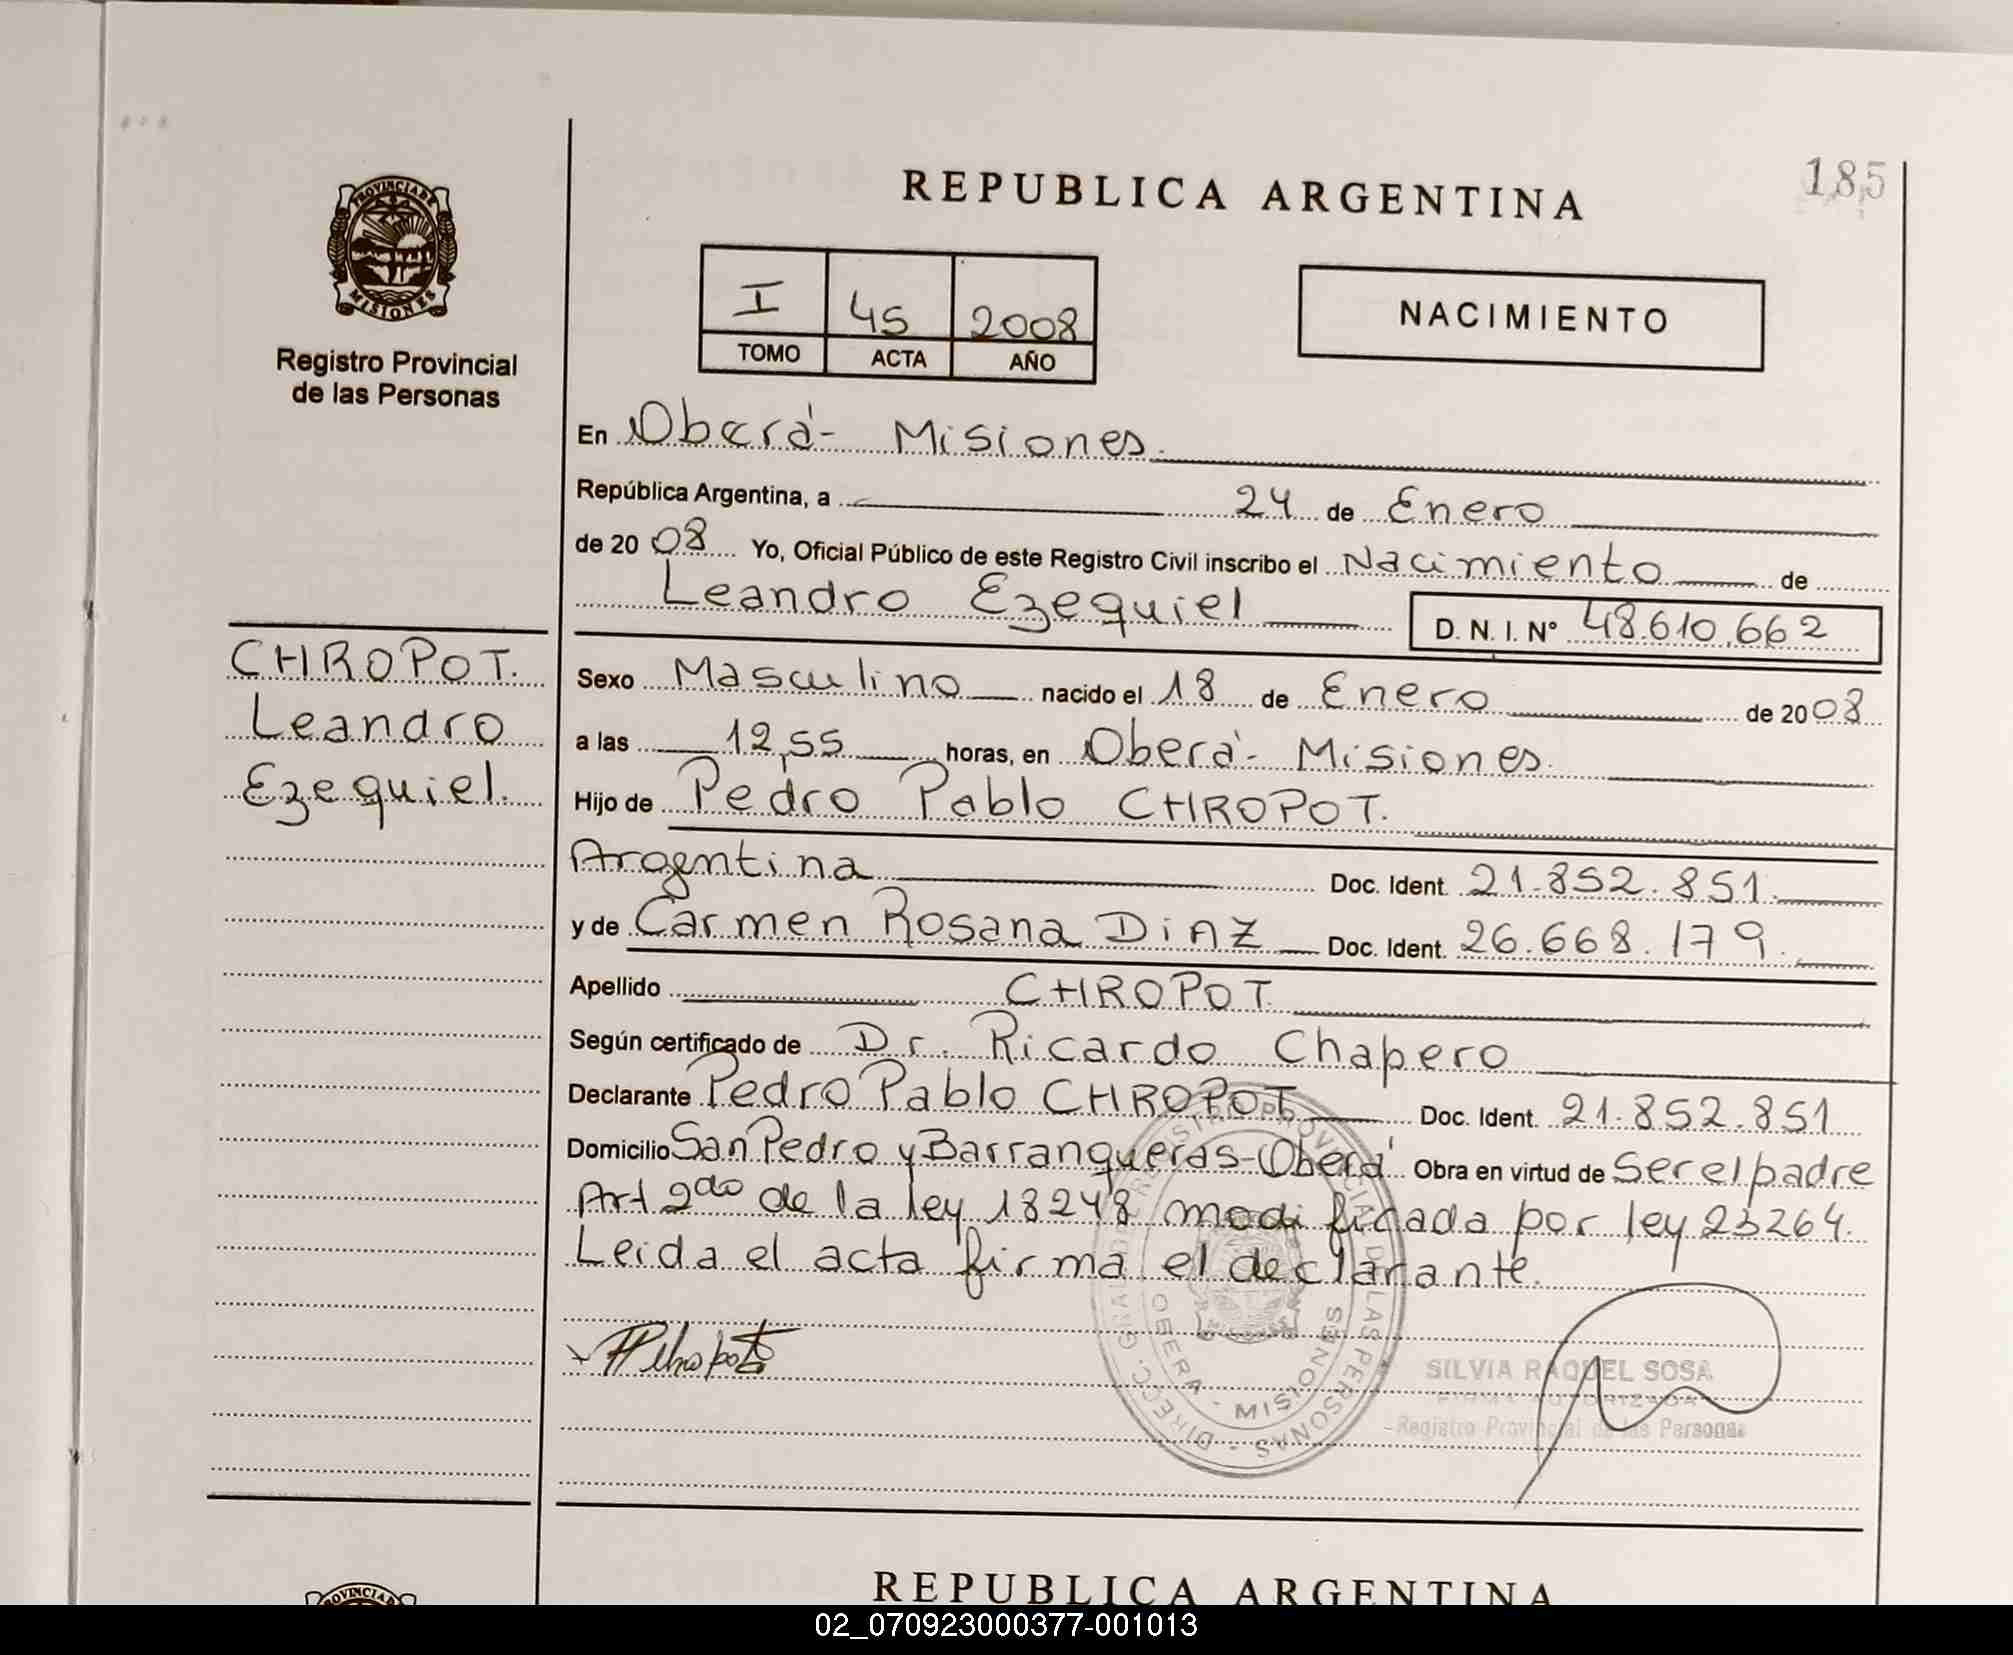 185
REPUBLICA ARGENTINA
PROVINCIA DE
MISIONES
Registro Provincial
de las Personas
I 45 2008
TOMO ACTA AÑO
NACIMIENTO
En Oberá - Misiones.
República Argentina, a 24 de Enero
de 2008 Yo, Oficial Público de este Registro Civil inscribo el Nacimiento de
Leandro Ezequiel D. N. I. Nº 48.610.662
CHROPOT.
Leandro
Ezequiel.
Sexo Masculino nacido el 18 de Enero de 2008
a las 12,55 horas, en Oberá - Misiones.
Hijo de Pedro Pablo CHROPOT.
Argentina Doc. Ident. 21.852.851.
y de Carmen Rosana DiAZ Doc. Ident. 26.668.179.
Apellido CHROPOT.
Según certificado de Dr. Ricardo Chapero
Declarante Pedro Pablo CHROPOT Doc. Ident. 21.852.851
Domicilio San Pedro y Barranqueras - Oberá Obra en virtud de Ser el padre
Art 2do de la ley 18248 modificada por ley 23264.
Leida el acta firma el declarante.
DIRECC. GRAL. DE REGISTRO PROVINCIAL DE LAS PERSONAS
OBERA - MISIONES
SILVIA RAQUEL SOSA
FIRMA AUTORIZADA
Registro Provincial de las Personas
REPUBLICA ARGENTINA
PROVINCIA
02_070923000377-001013